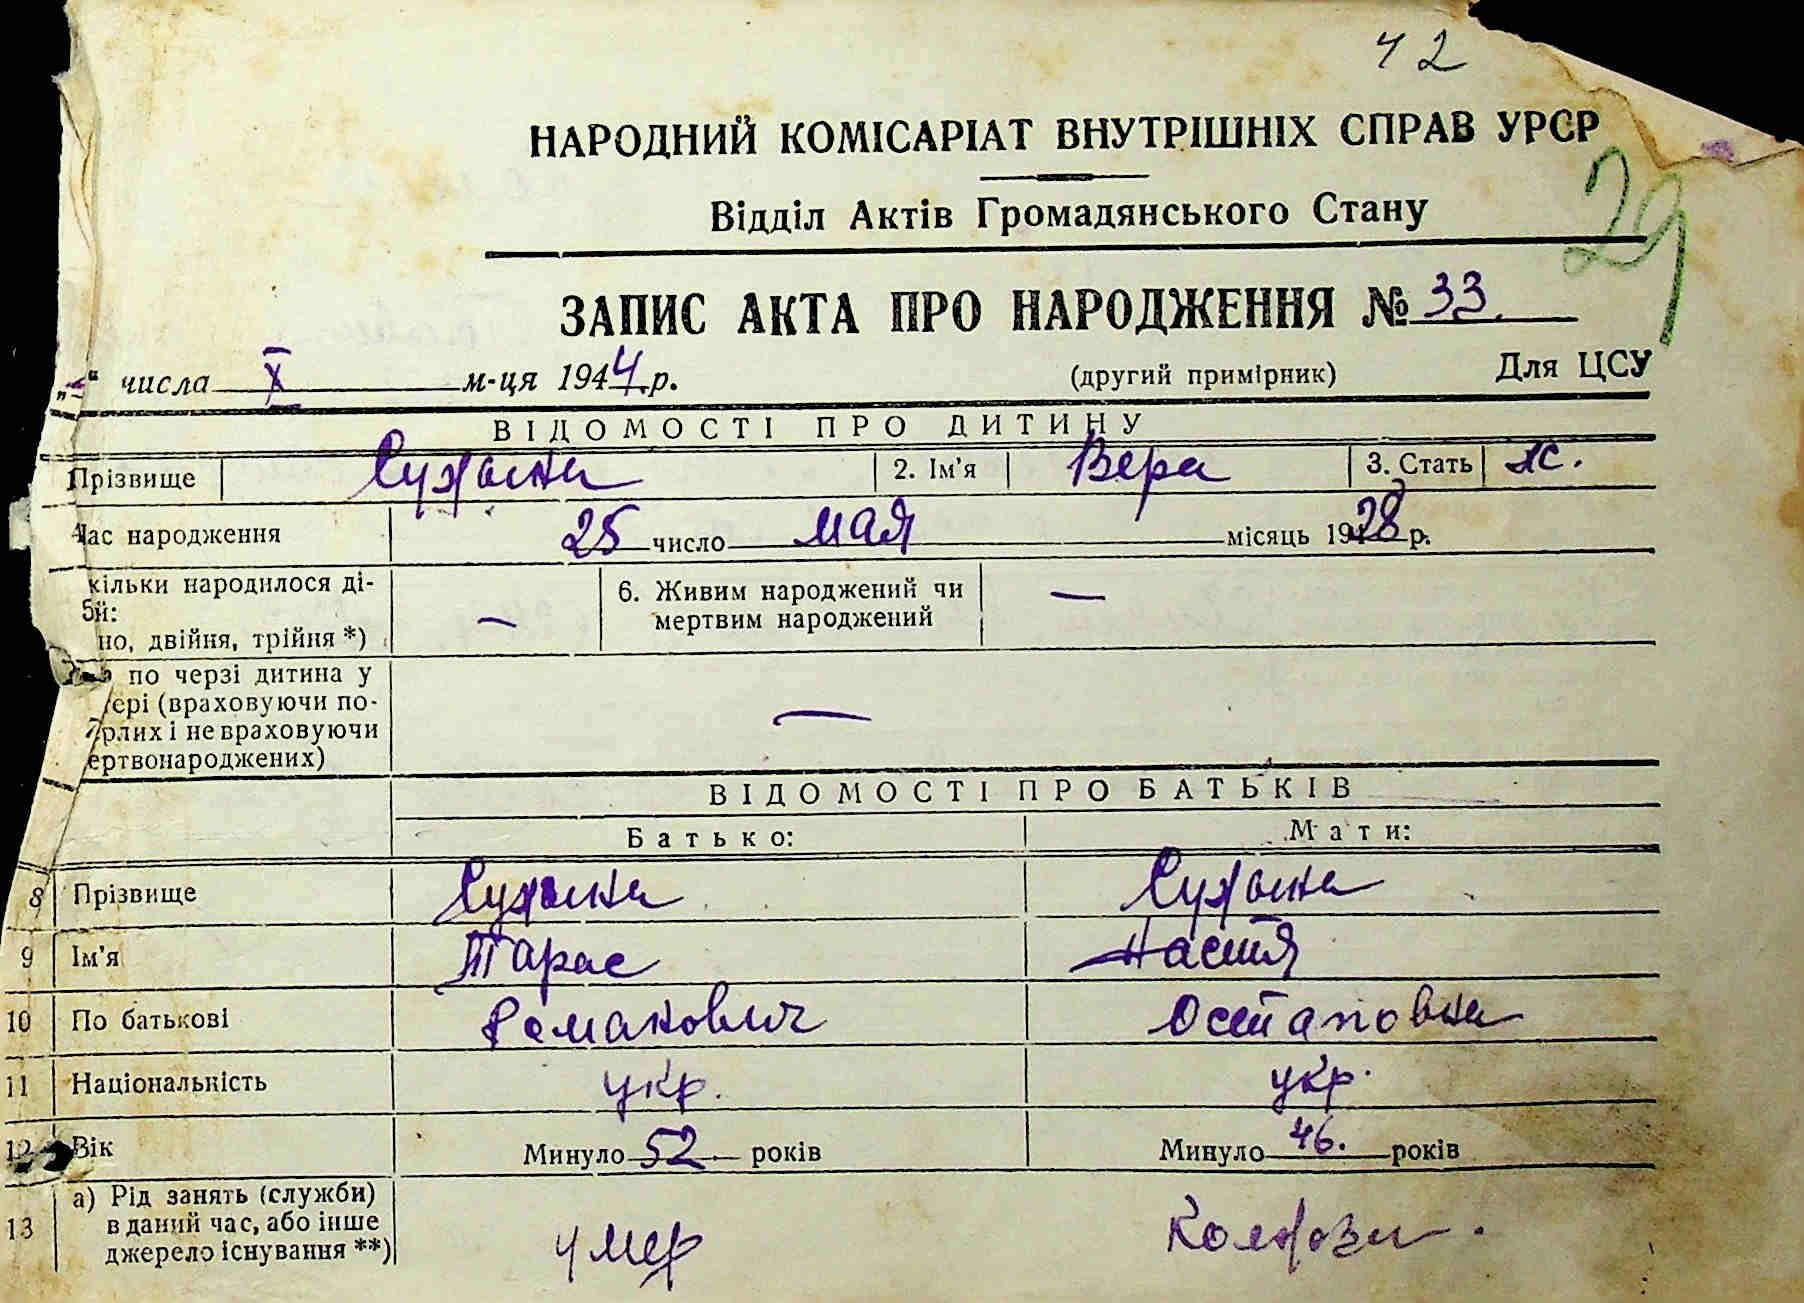 42
НАРОДНИЙ КОМІСАРІАТ ВНУТРІШНІХ СПРАВ УРСР
29
Відділ Актів Громадянського Стану
ЗАПИС АКТА ПРО НАРОДЖЕННЯ № 33.
„ “ числа X м-ця 1944 р. (другий примірник) Для ЦСУ
ВІДОМОСТІ ПРО ДИТИНУ
Прізвище Сухына 2. Ім’я Вера 3. Стать ж.
Час народження 25 число мая місяць 1928 р.
кільки народилося ді-
5 й:
но, двійня, трійня *) — 6. Живим народжений чи
мертвим народжений —
по черзі дитина у
ері (враховуючи по-
7 рлих і не враховуючи
ертвонароджених) —
ВІДОМОСТІ ПРО БАТЬКІВ
Батько: Мати:
8 Прізвище Сухына Сухына
9 Ім’я Тарас Настя
10 По батькові Романович Остаповна
11 Національність укр. укр.
12 Вік Минуло 52 років Минуло 46. років
13 а) Рід занять (служби)
в даний час, або інше
джерело існування **) умер Колхозн.